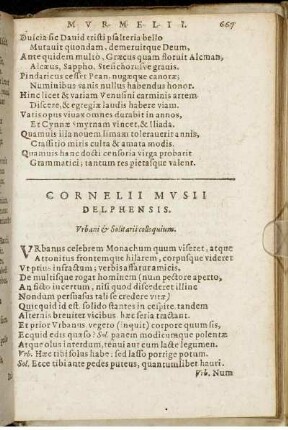 MVRMELII. 667
Dulcia sic David tristi psalteria bello
Mutauit quondam, demeruitque Deum,
Ante quidem multò, Græcus quam floruit Alcman,
Alcæus, Sappho, Stesichorusve grauis.
Pindaricus cesset Pæan, nugæque canoræ;
Numinibus vanis nullus habendus honor.
Hinc licet & variam Venusini carminis artem
Discere, & egregiæ laudis habere viam.
Vatis opus viuax omnes durabit in annos,
Et Cynnæ Smyrnam vincet, & Iliada.
Quamuis illa nouem limam tolerauerit annis,
Crassitio mitis culta & amata modis.
Quamuis hanc docti censoria virga probarit
Grammatici; tantum res pietasque valent.
CORNELII MVSII
DELPHENSIS.
Vrbani & Solitarii colloquium.
VRbanus celebrem Monachum quum viseret, atque
Attonitus frontemque hilarem, corpusque videret
Vt prius infractum; verbis affatur amicis,
De multisque rogat hominem (num pectore aperto,
An ficto incertum, nisi quod disederet illine
Nondum persuasus talis credere vitæ)
Quicquid id est, solido stantes in cespite, tandem
Alternis breuiter vicibus hæc seria tractant.
Et prior Vrbanus, vegeto (inquit) corpore quum sis,
Ecquid edis quæso? Sol. panem modicumque polentæ
Atque olus interdum, tenui aut cum lacte legumen.
Vrb. Hæc tibi solus habe: sed lasso porrige potum.
Sol. Ecce tibi ante pedes puteus, quantumlibet hauri.
Vrb. Num